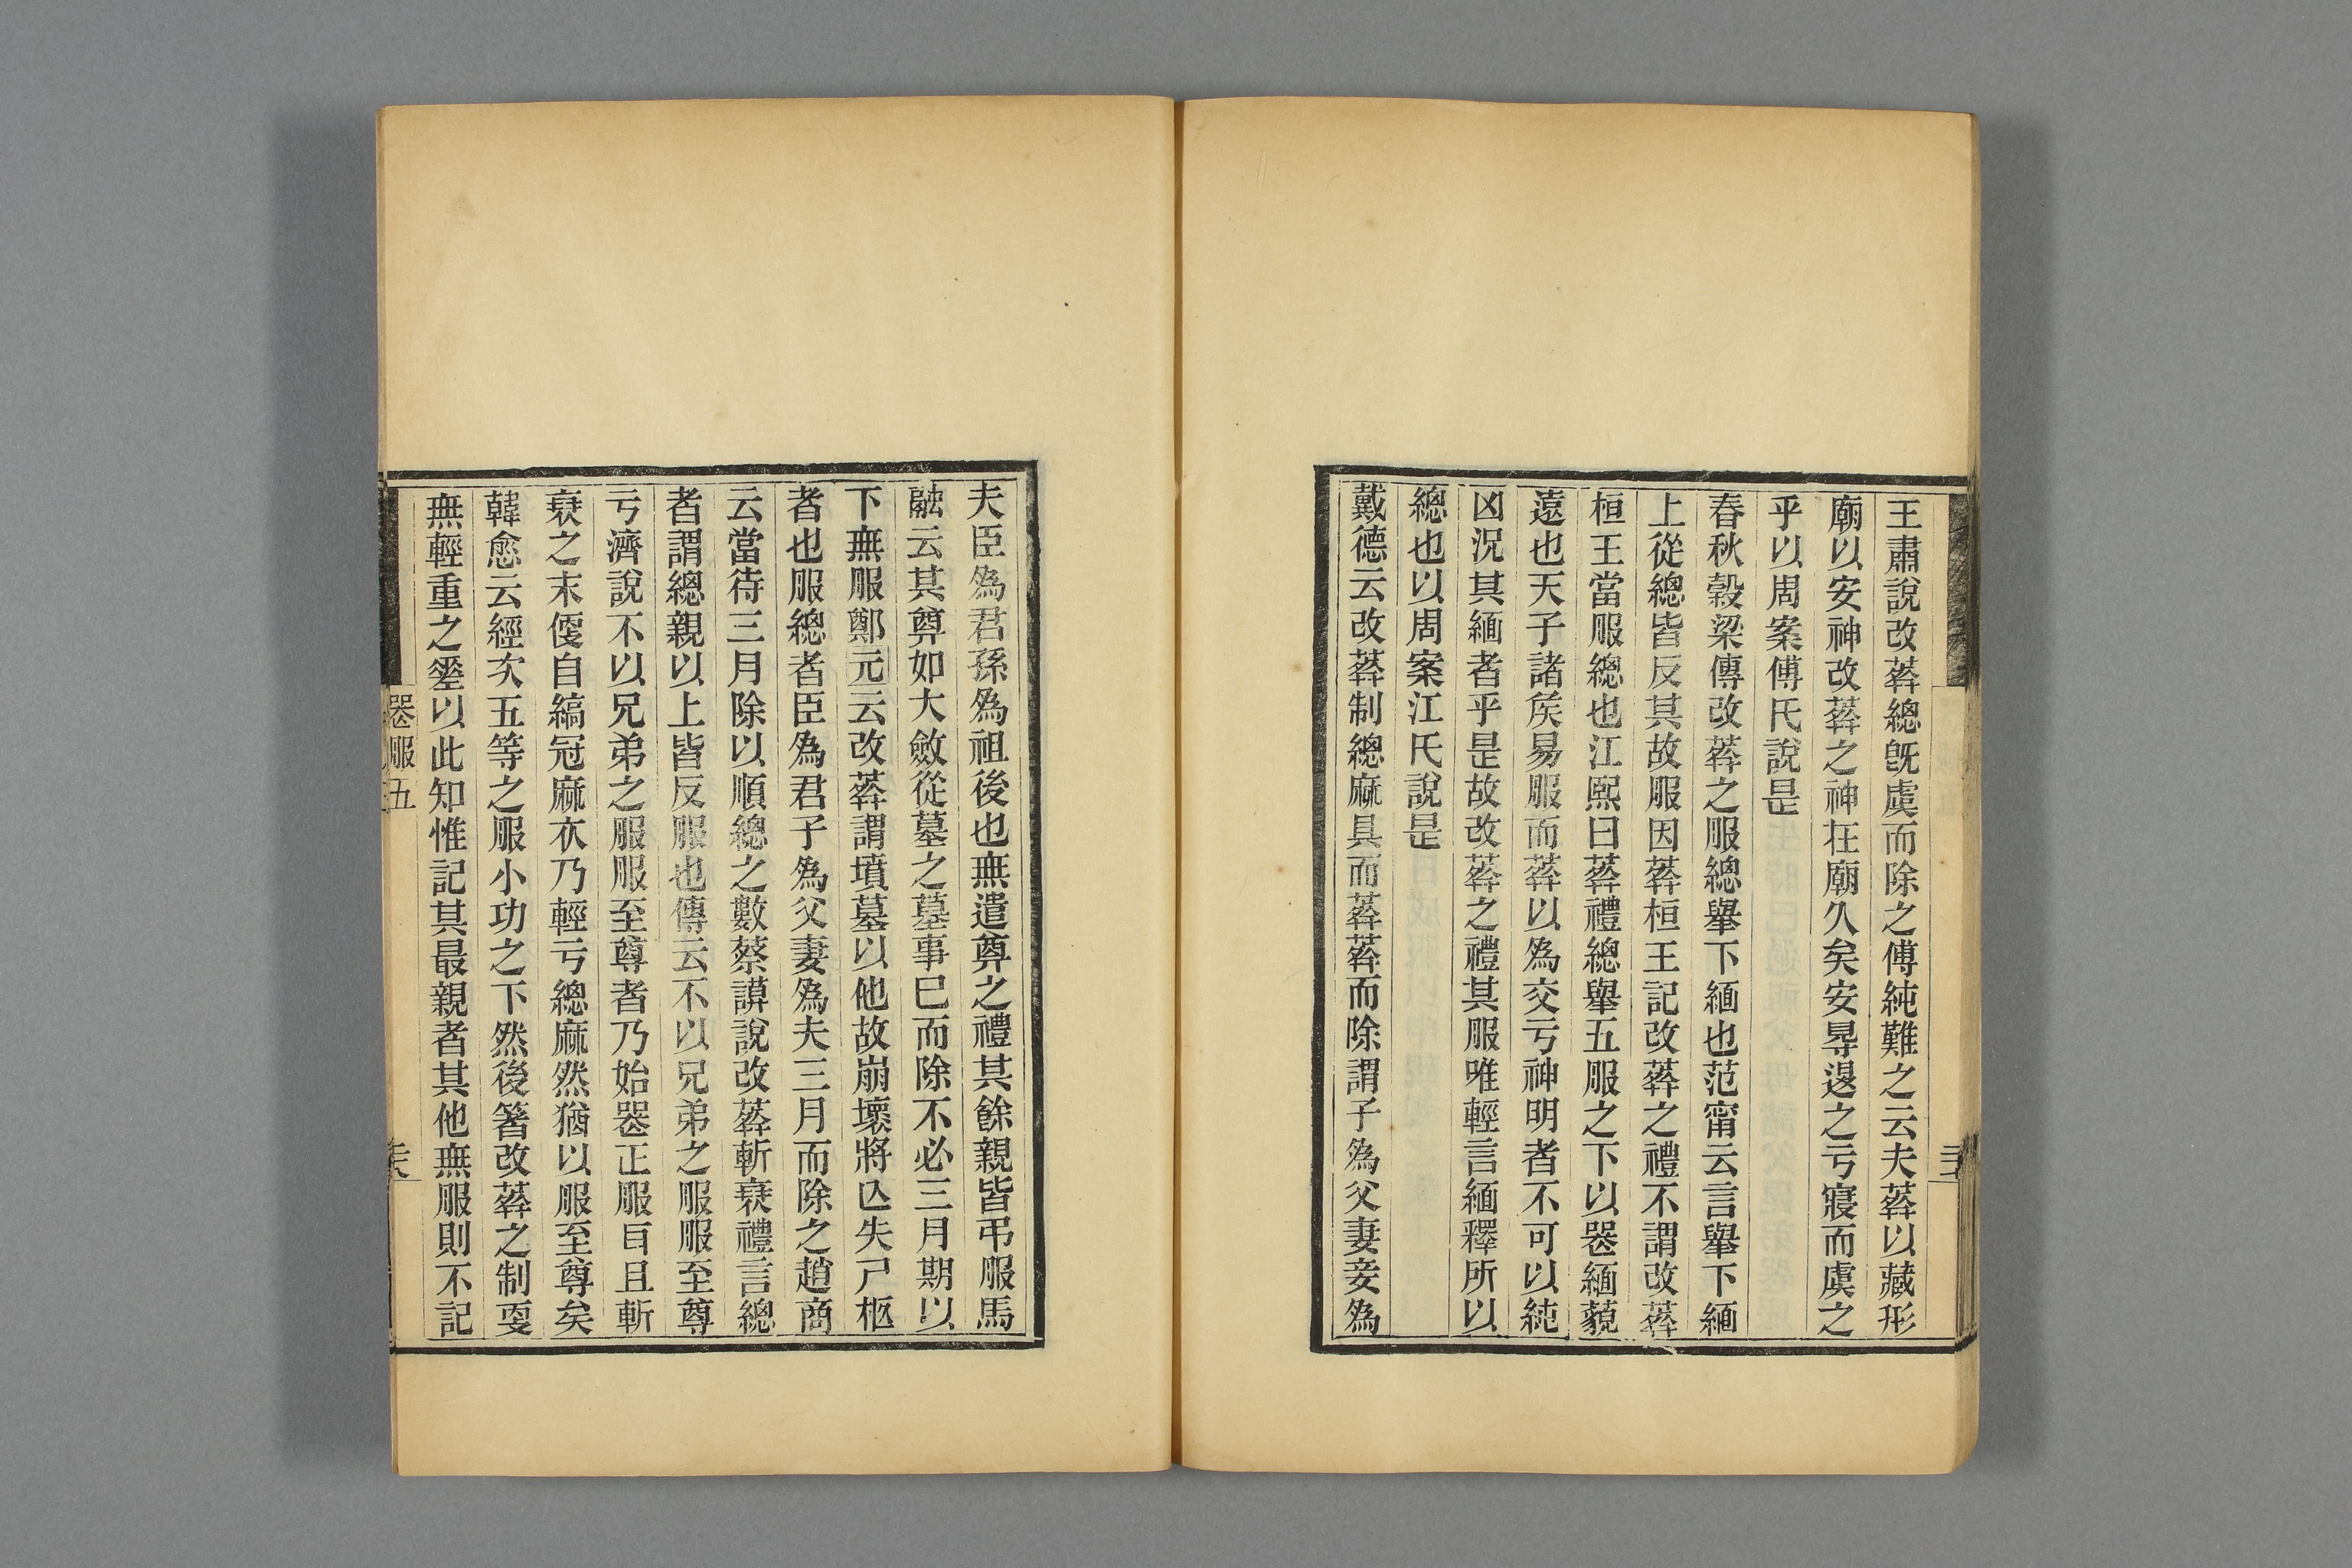 王肅說改葬緦旣虞而除之傅純難之云夫葬以藏形
廟以安神改葬之神在廟久矣安㝵𨓤之亏寢而虞之
乎以周案傅氏說是
春秋穀梁傳改葬之服緦舉下緬也范甯云言舉下緬
上從緦皆反其故服因葬桓王記改葬之禮不謂改葬
桓王當服緦也江熙曰葬禮緦舉五服之下以喪緬藐
遠也天子諸矦易服而葬以爲交亏神明者不可以純
凶況其緬者乎是故改葬之禮其服唯輕言緬釋所以
緦也以周案江氏說是
戴德云改葬制緦麻具而葬葬而除謂子爲父妻妾爲
夫臣爲君孫爲祖後也無遣尊之禮其餘親皆弔服馬
融云其尊如大斂從墓之墓事已而除不必三月期以
下無服鄭元云改葬謂墳墓以他故崩壞將亾失尸柩
者也服緦者臣爲君子爲父妻爲夫三月而除之趙商
云當待三月除以順緦之數蔡謨說改葬斬衰禮言緦
者謂緦親以上皆反服也傳云不以兄弟之服服至尊
亏濟說不以兄弟之服服至尊者乃始喪正服㠯且斬
衰之末㥼自縞冠麻衣乃輕亏緦麻然猶以服至尊矣
韓愈云經次五等之服小功之下然後箸改葬之制㪅
無輕重之𢀩以此知惟記其最親者其他無服則不記
喪服五